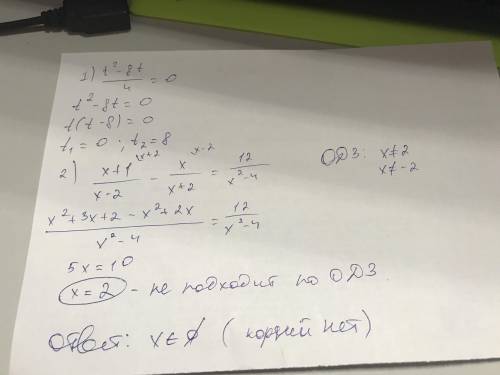 1) (t² - 8t)/4 = 0
t² - 8t = 0
t(t - 8) = 0
t₁ = 0 ; t₂ = 8
2) (x+1)/(x-2) ^(x+2) - x/(x+2) ^(x-2) = 12/(x²-4)
ОДЗ: x≠2
x≠-2
(x² + 3x + 2 - x² + 2x)/(x² - 4) = 12/(x²-4)
5x = 10
x = 2 - не подходит по ОДЗ.
Ответ: x ∈ ∅ (корней нет)